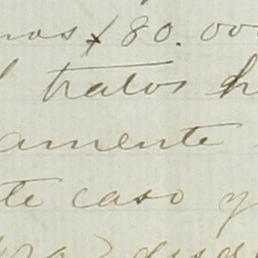 mos $80.000
tratos h
amente
te caso y